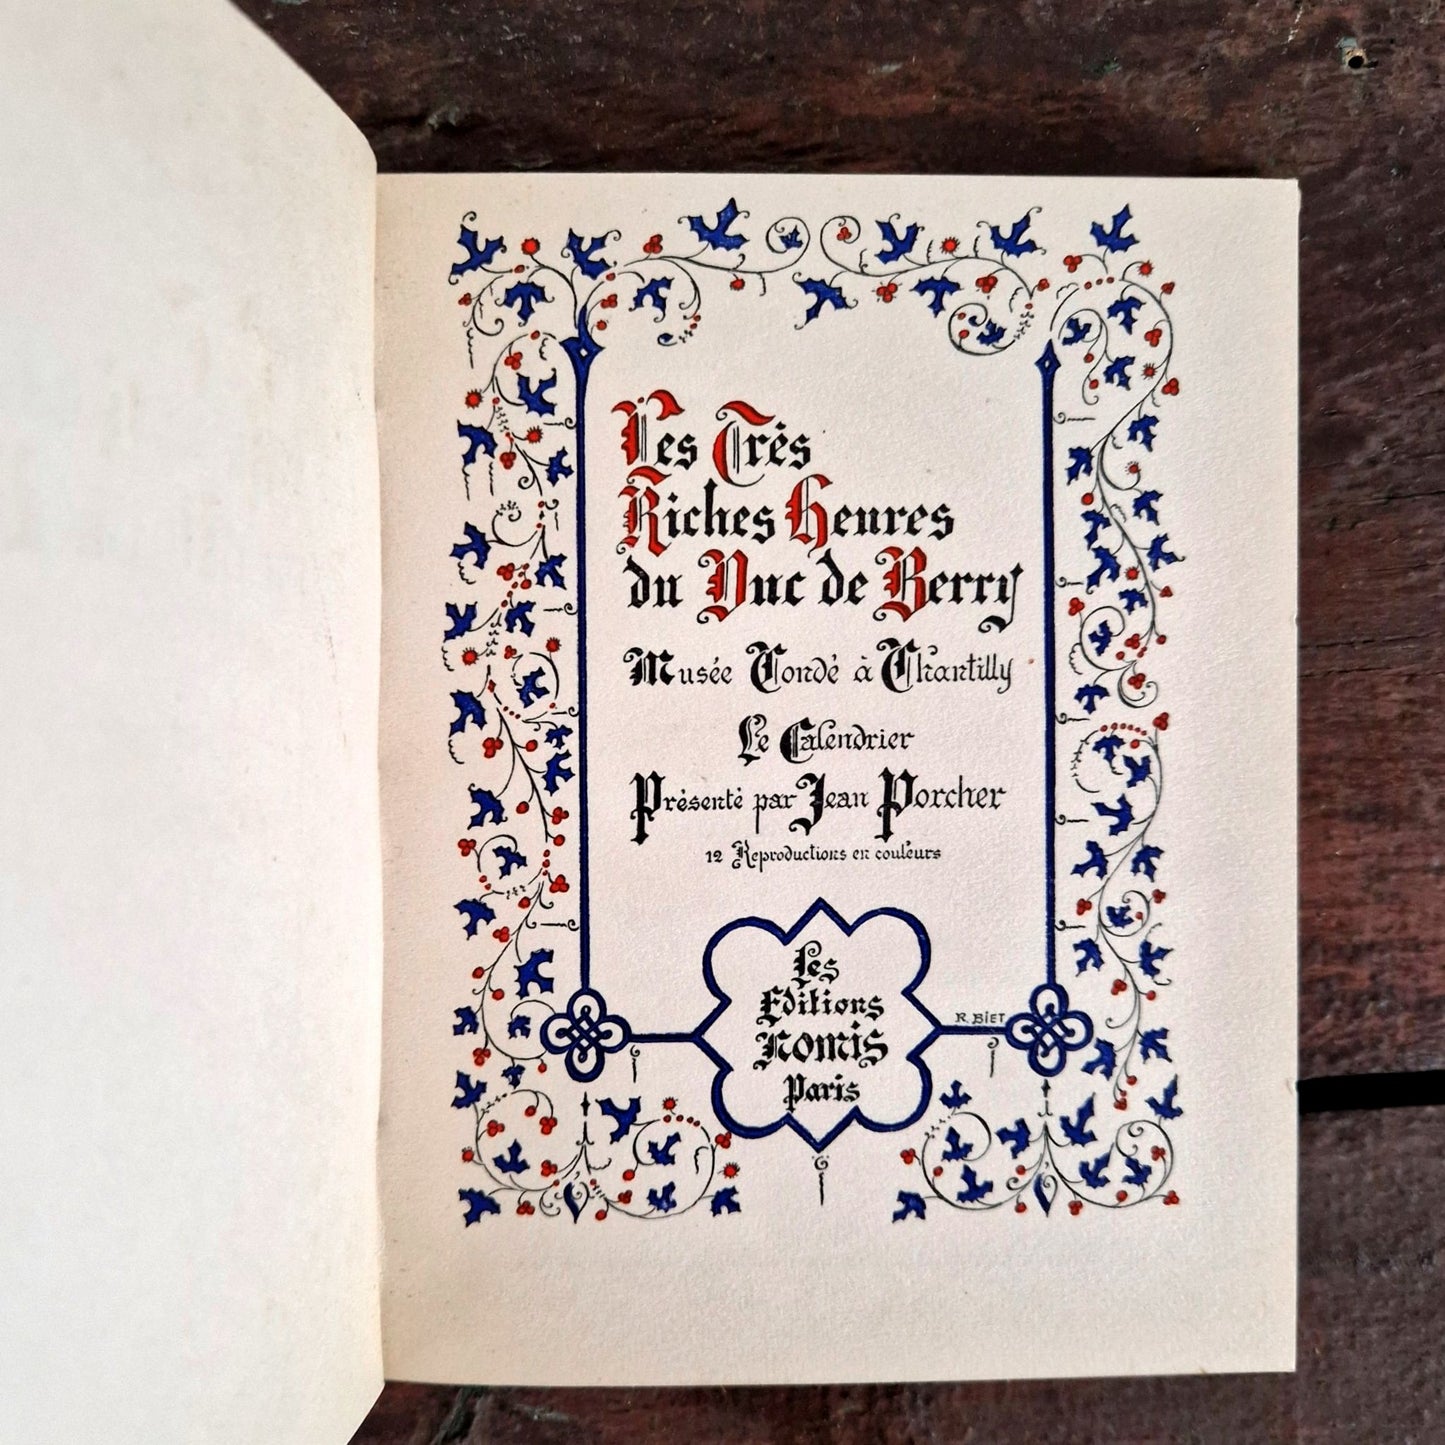 Les Très
Riches Heures
du Duc de Berry
Musée Condé à Chantilly
Le Calendrier
Présenté par Jean Porcher
12 Reproductions en couleurs
Les
Editions
Nomis
Paris
R. BIET